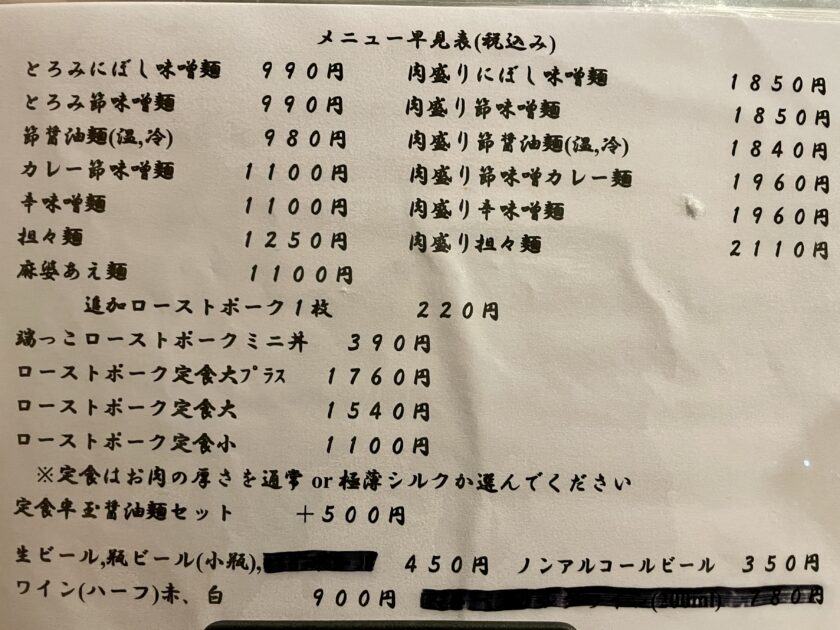 メニュー早見表(税込み)
とろみにぼし味噌麺 990円 肉盛りにぼし味噌麺 1850円
とろみ節味噌麺 990円 肉盛り節味噌麺 1850円
節醤油麺(温,冷) 980円 肉盛り節醤油麺(温,冷) 1840円
カレー節味噌麺 1100円 肉盛り節味噌カレー麺 1960円
辛味噌麺 1100円 肉盛り辛味噌麺 1960円
担々麺 1250円 肉盛り担々麺 2110円
麻婆あえ麺 1100円
追加ローストポーク1枚 220円
端っこローストポークミニ丼 390円
ローストポーク定食大プラス 1760円
ローストポーク定食大 1540円
ローストポーク定食小 1100円
※定食はお肉の厚さを通常 or 極薄シルクか選んでください
定食半玉醤油麺セット +500円
生ビール,瓶ビール(小瓶), 450円 ノンアルコールビール 350円
ワイン(ハーフ)赤、白 900円 780円